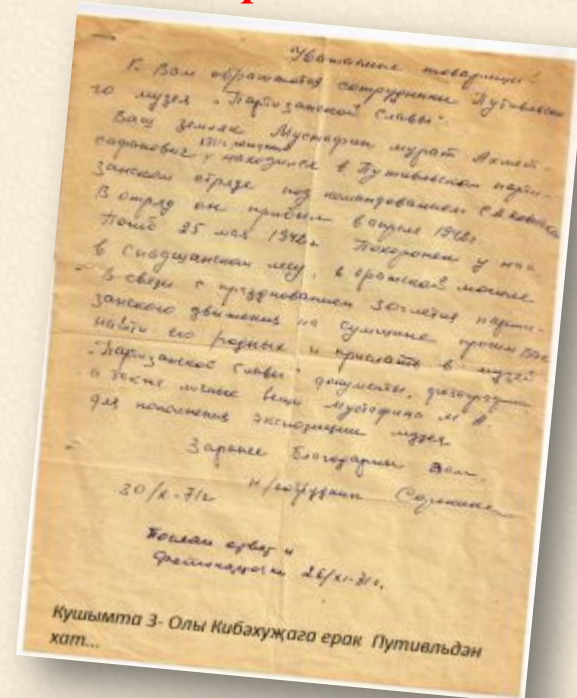 Уважаемые товарищи!
К Вам обращаются сотрудники Путивльско
го музея "Партизанской Славы".
Ваш земляк Мустафин Мурат Ахмет-
сафанович, 1911г рождения
находился в Путивльском парти-
занском отряде под командованием С.А. Ковпака
В отряд он прибыл в апреле 1942г.
Погиб 25 мая 1942г. Похоронен у нас
в Спадщанском лесу, в братской могиле
В связи с празднованием 30-летия парти-
занского движения на Сумщине просим Вас
найти его родных и прислать в музей
"Партизанской Славы" документы, фотографии
а также личные вещи Мустафина М. А.
для пополнения экспозиции музея
Заранее благодарим Вам.
30/X-71г н/сотрудник
Послан ответ и
26/XI-71г.
Кушымта 3- Олы Кибәхуҗага ерак Путивльдән
хат...